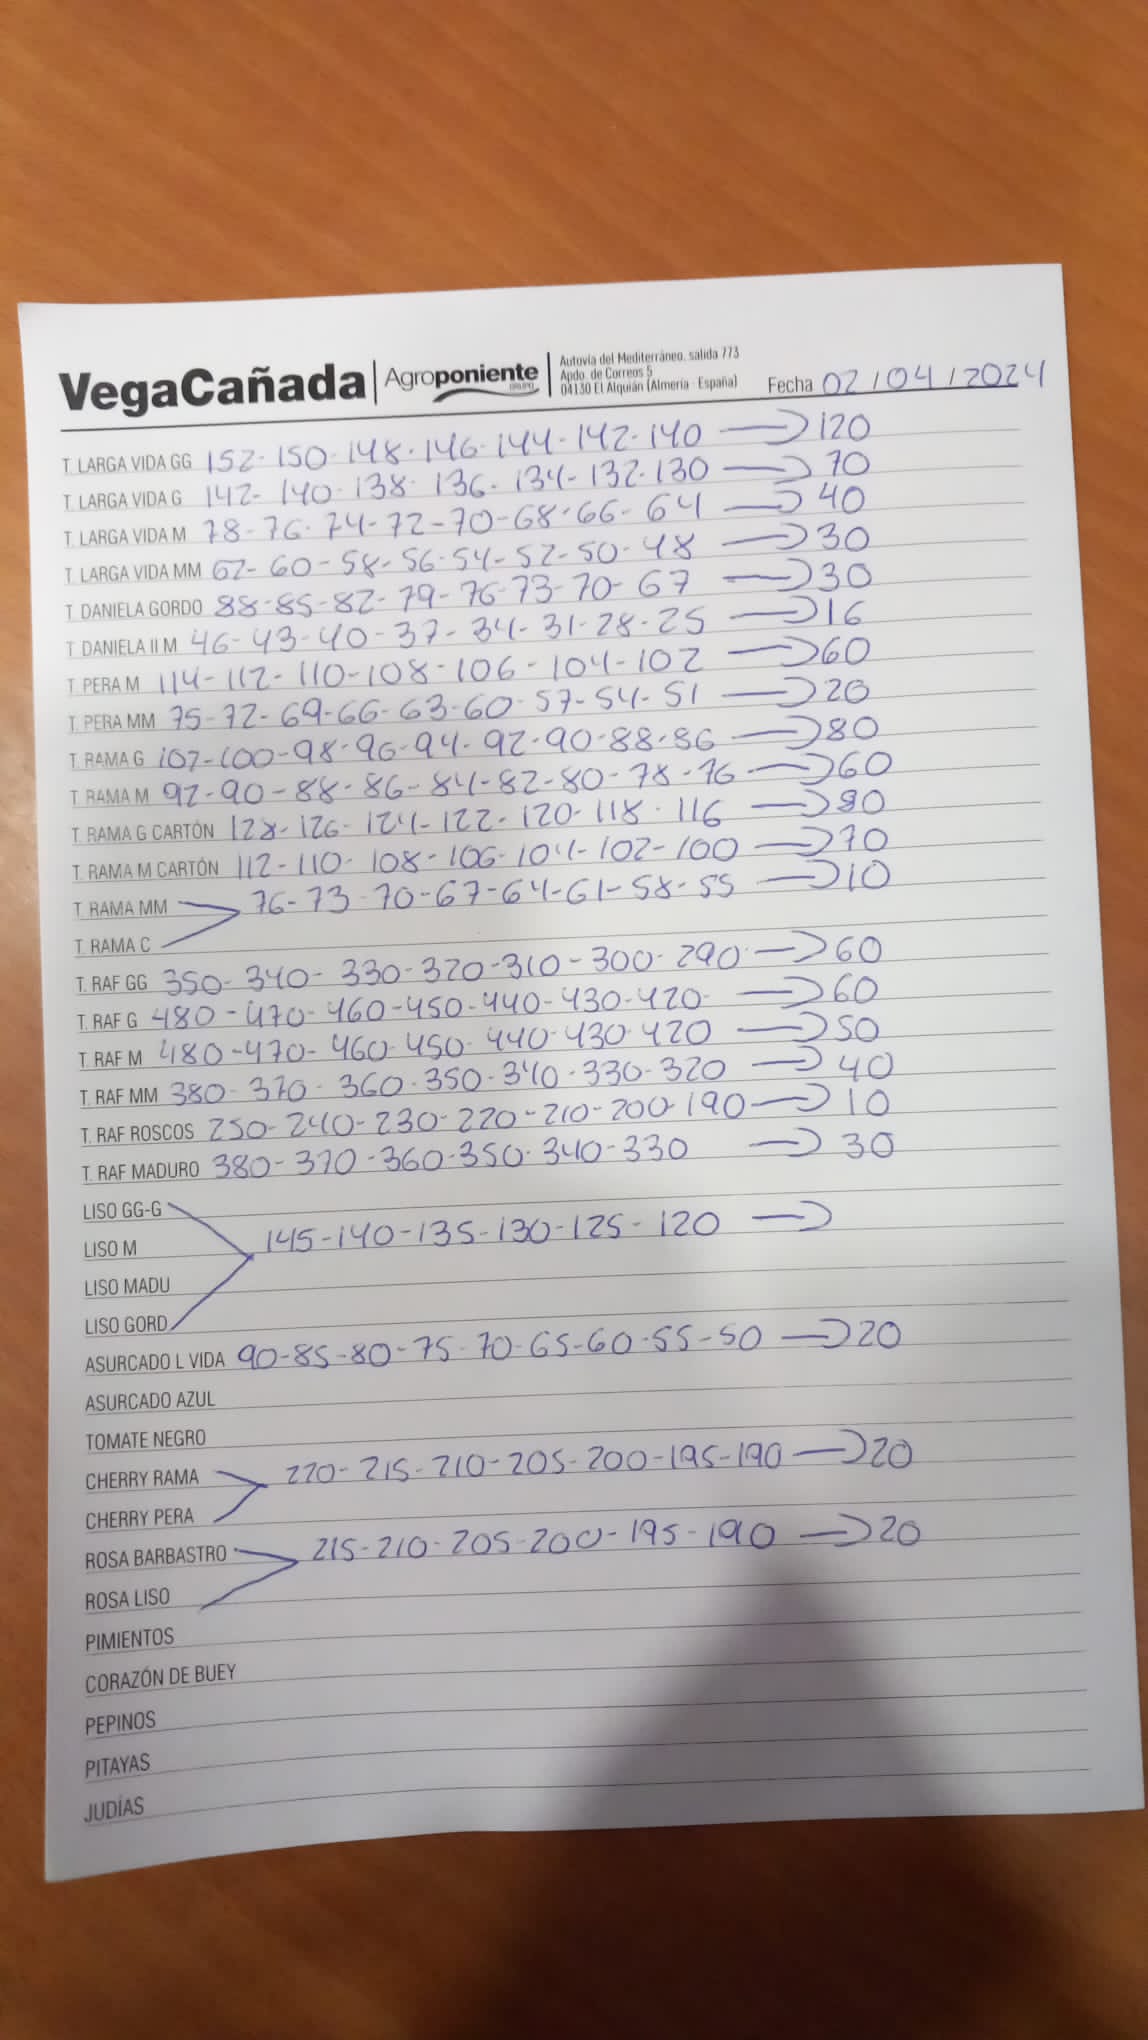 VegaCañada | Agroponiente GRUPO | Autovía del Mediterráneo, salida 773
Apdo. de Correos 5
04130 El Alquián (Almería - España)
Fecha 02/04/2024
T. LARGA VIDA GG 152-150-148-146-144-142-140 → 120
T. LARGA VIDA G 142-140-138-136-134-132-130 → 70
T. LARGA VIDA M 78-76-74-72-70-68-66-64 → 40
T. LARGA VIDA MM 62-60-58-56-54-52-50-48 → 30
T. DANIELA GORDO 88-85-82-79-76-73-70-67 → 30
T. DANIELA II M 46-43-40-37-34-31-28-25 → 16
T. PERA M 114-112-110-108-106-104-102 → 60
T. PERA MM 75-72-69-66-63-60-57-54-51 → 20
T. RAMA G 102-100-98-96-94-92-90-88-86 → 80
T. RAMA M 92-90-88-86-84-82-80-78-76 → 60
T. RAMA G CARTÓN 128-126-124-122-120-118-116 → 80
T. RAMA M CARTÓN 112-110-108-106-104-102-100 → 70
T. RAMA MM 76-73-70-67-64-61-58-55 → 10
T. RAMA C
T. RAF GG 350-340-330-320-310-300-290 → 60
T. RAF G 480-470-460-450-440-430-420 → 60
T. RAF M 480-470-460-450-440-430-420 → 50
T. RAF MM 380-370-360-350-340-330-320 → 40
T. RAF ROSCOS 250-240-230-220-210-200-190 → 10
T. RAF MADURO 380-370-360-350-340-330 → 30
LISO GG-G
LISO M 145-140-135-130-125-120 →
LISO MADU
LISO GORD
ASURCADO L VIDA 90-85-80-75-70-65-60-55-50 → 20
ASURCADO AZUL
TOMATE NEGRO
CHERRY RAMA 220-215-210-205-200-195-190 → 20
CHERRY PERA
ROSA BARBASTRO 215-210-205-200-195-190 → 20
ROSA LISO
PIMIENTOS
CORAZÓN DE BUEY
PEPINOS
PITAYAS
JUDÍAS